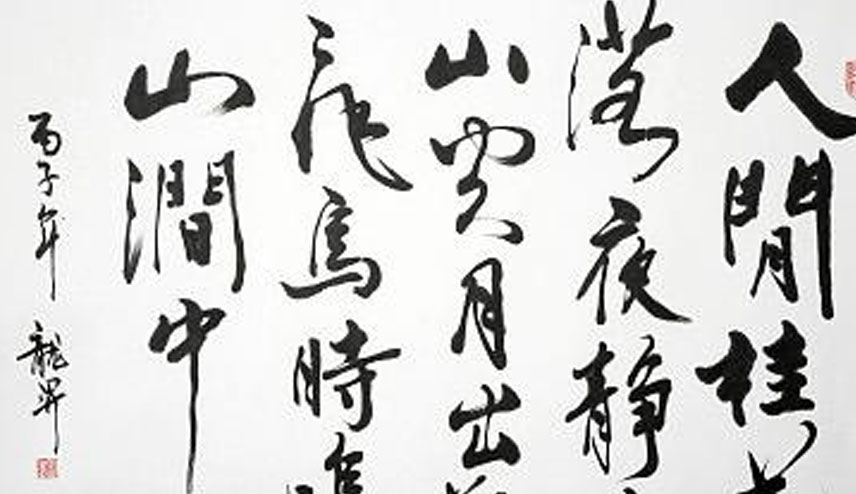 人閒桂
落夜靜
山空月出
飛鳥時
山澗中
丙子年 龍昇